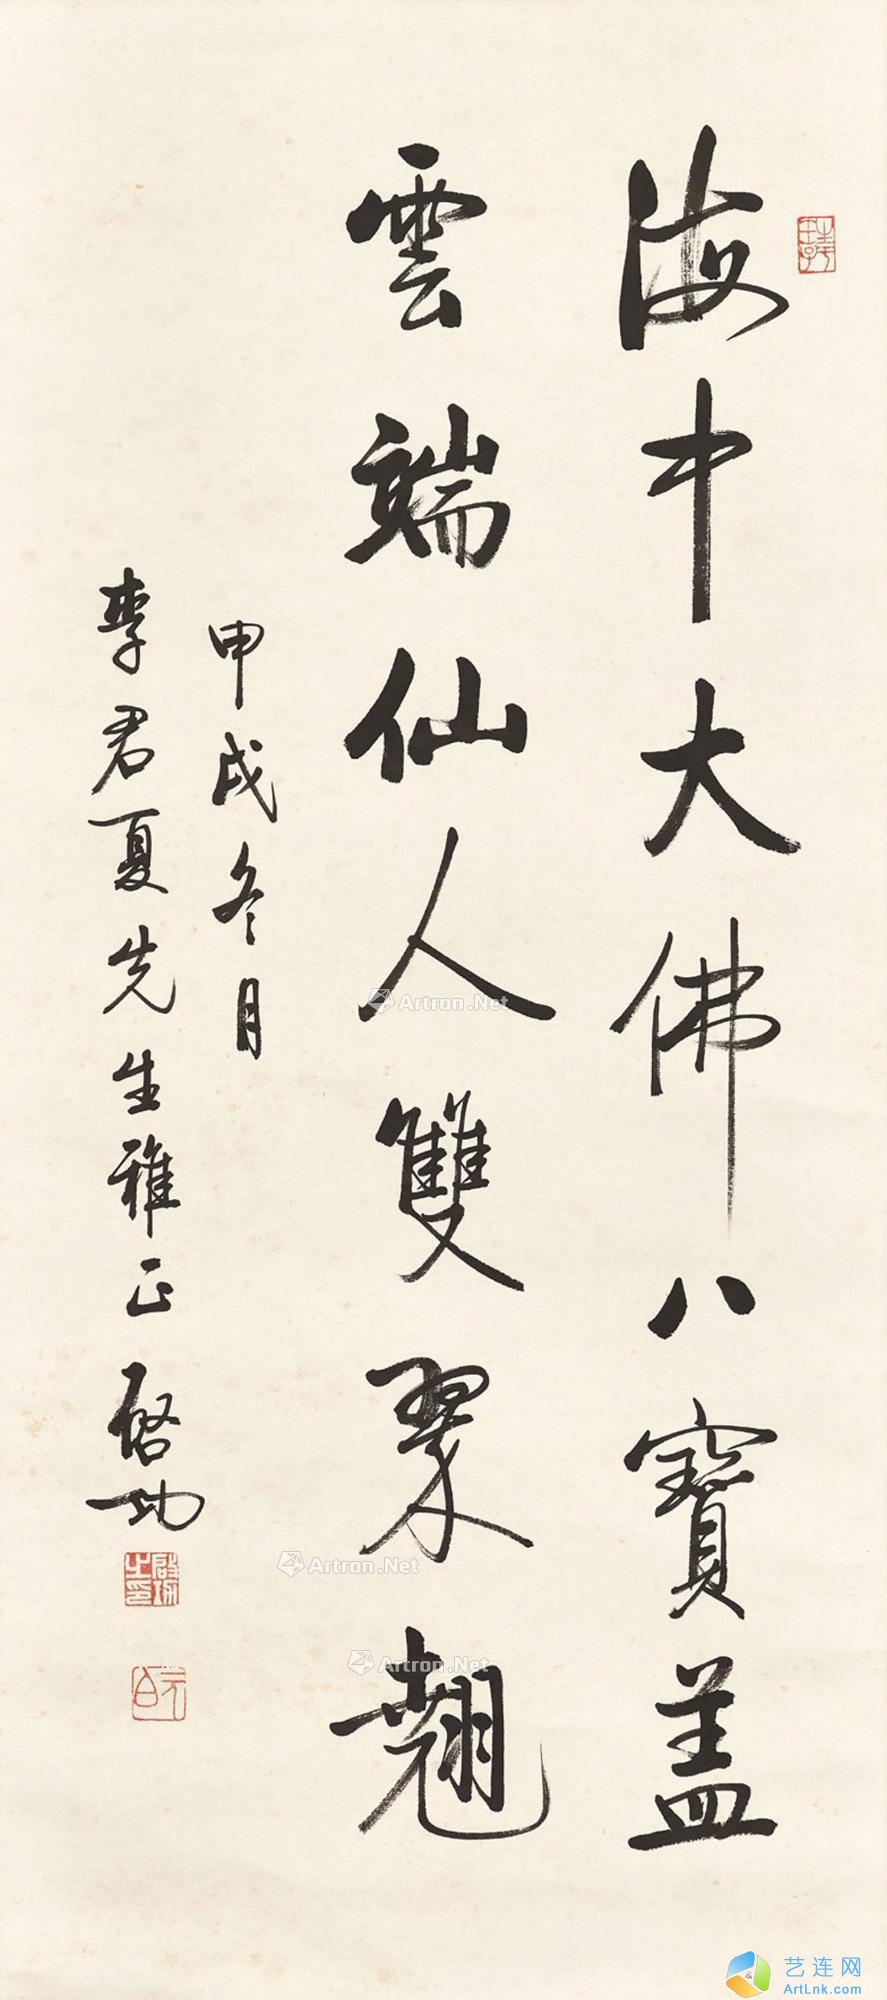 海中大佛八寶蓋
雲端仙人雙翠翹
甲戌冬月
李君夏先生雅正
啓功
啟功之印
元白
Artron.Net
Artron.Net
Artron.Net
艺连网
ArtLnk.com